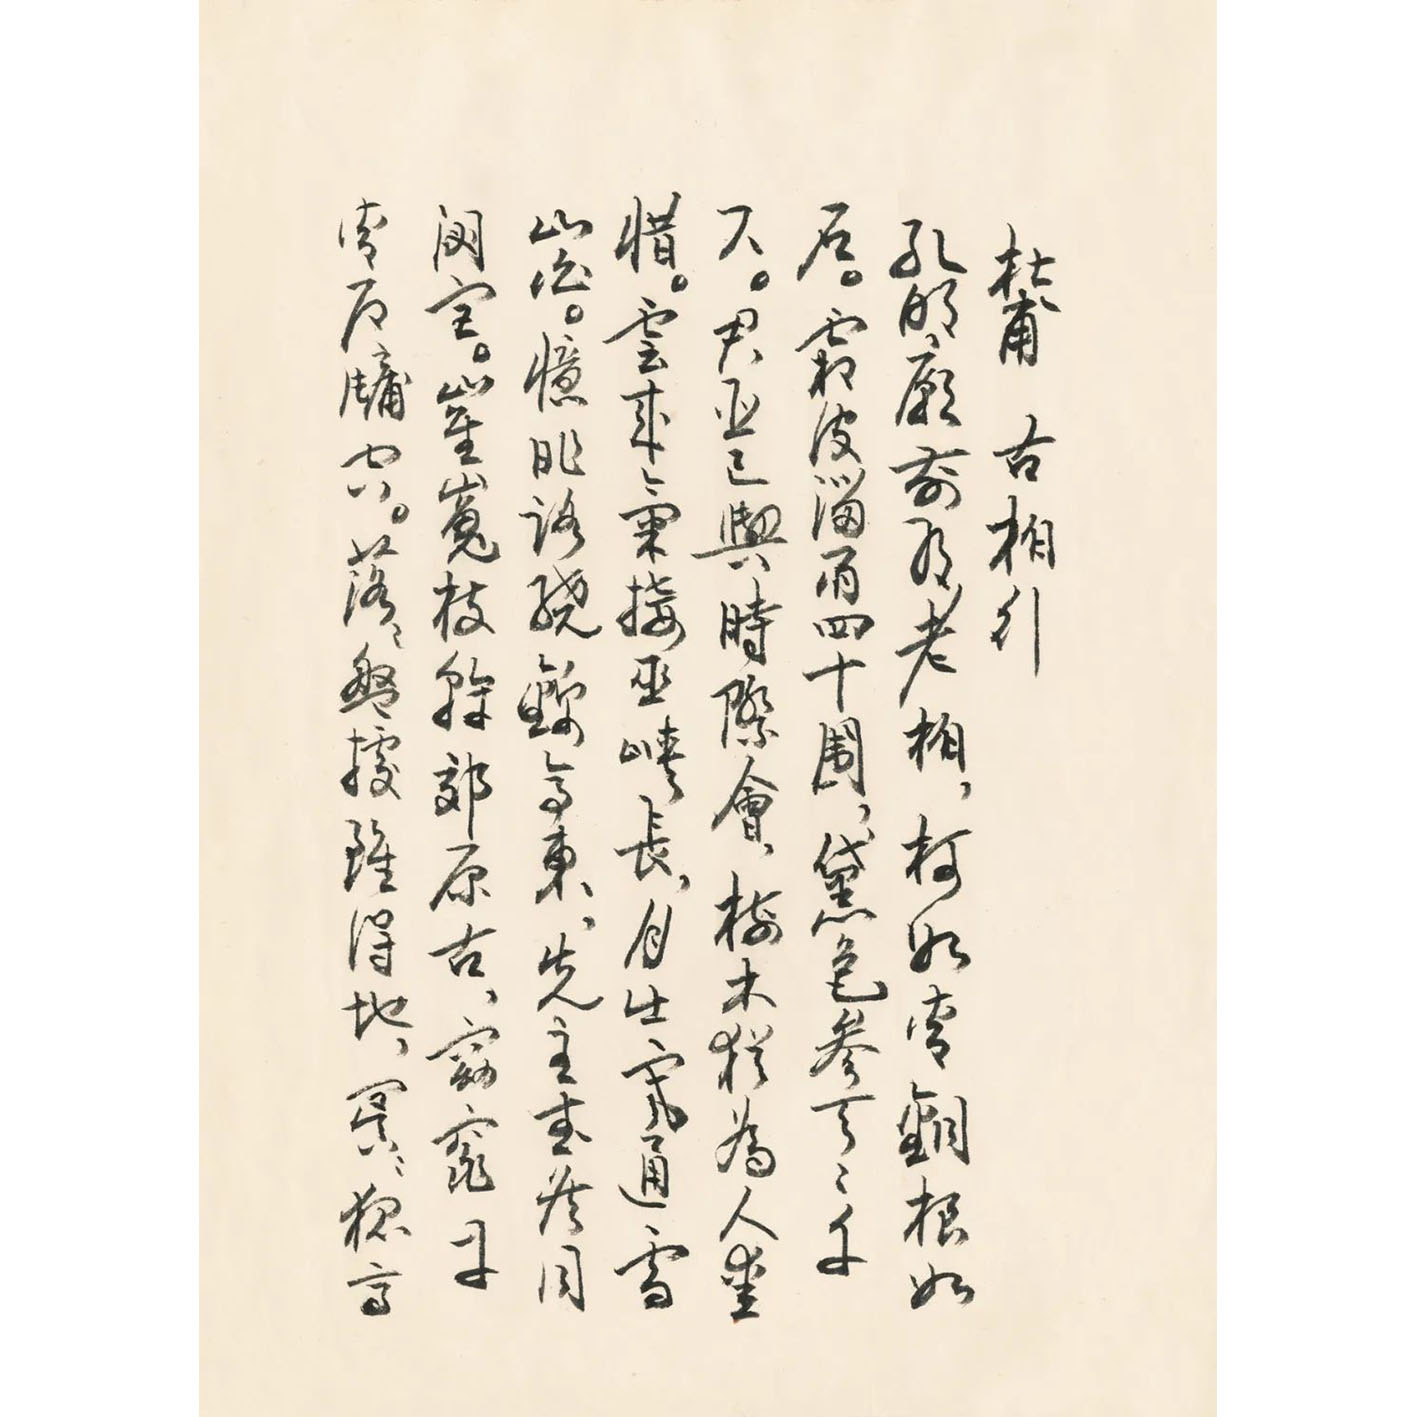 杜甫 古柏行
孔明廟前有老柏,柯如青銅根如
石。霜皮溜雨四十圍,黛色參天二千
尺。君臣已與時際會,樹木猶為人愛
惜。雲來氣接巫峽長,月出寒通雪
山白。憶昨路繞錦亭東,先主武侯同
閟宮。崔嵬枝幹郊原古,窈窕丹
青戶牖空。落〻盤據雖得地,冥〻孤高